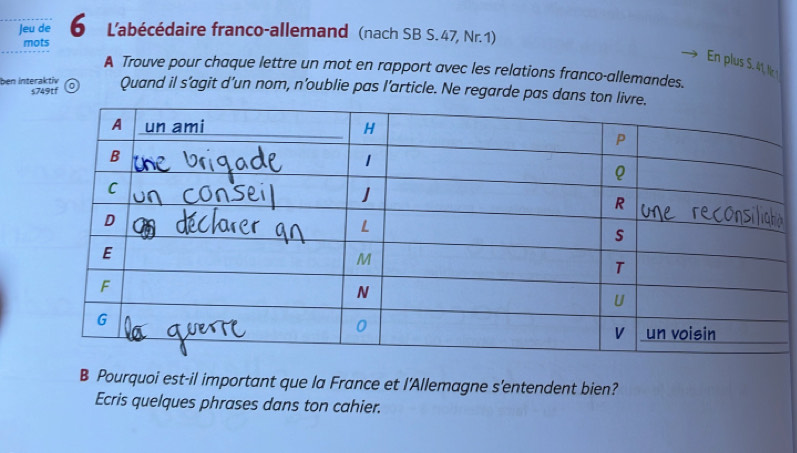 Jeu de
mots
6 L'abécédaire franco-allemand (nach SB S. 47, Nr. 1)
→ En plus S. 41,
A Trouve pour chaque lettre un mot en rapport avec les relations franco-allemandes.
Quand il s'agit d'un nom, n'oublie pas l'article. Ne regarde pas dans ton livre.
ben interaktiv
s749tf
A un ami
B une brigade
C un conseil
D déclarer an
E
F
G la guerre
H
I
J
L
M
N
O
P
Q
R une
S
T
U
V un voisin
B Pourquoi est-il important que la France et l'Allemagne s'entendent bien?
Ecris quelques phrases dans ton cahier.